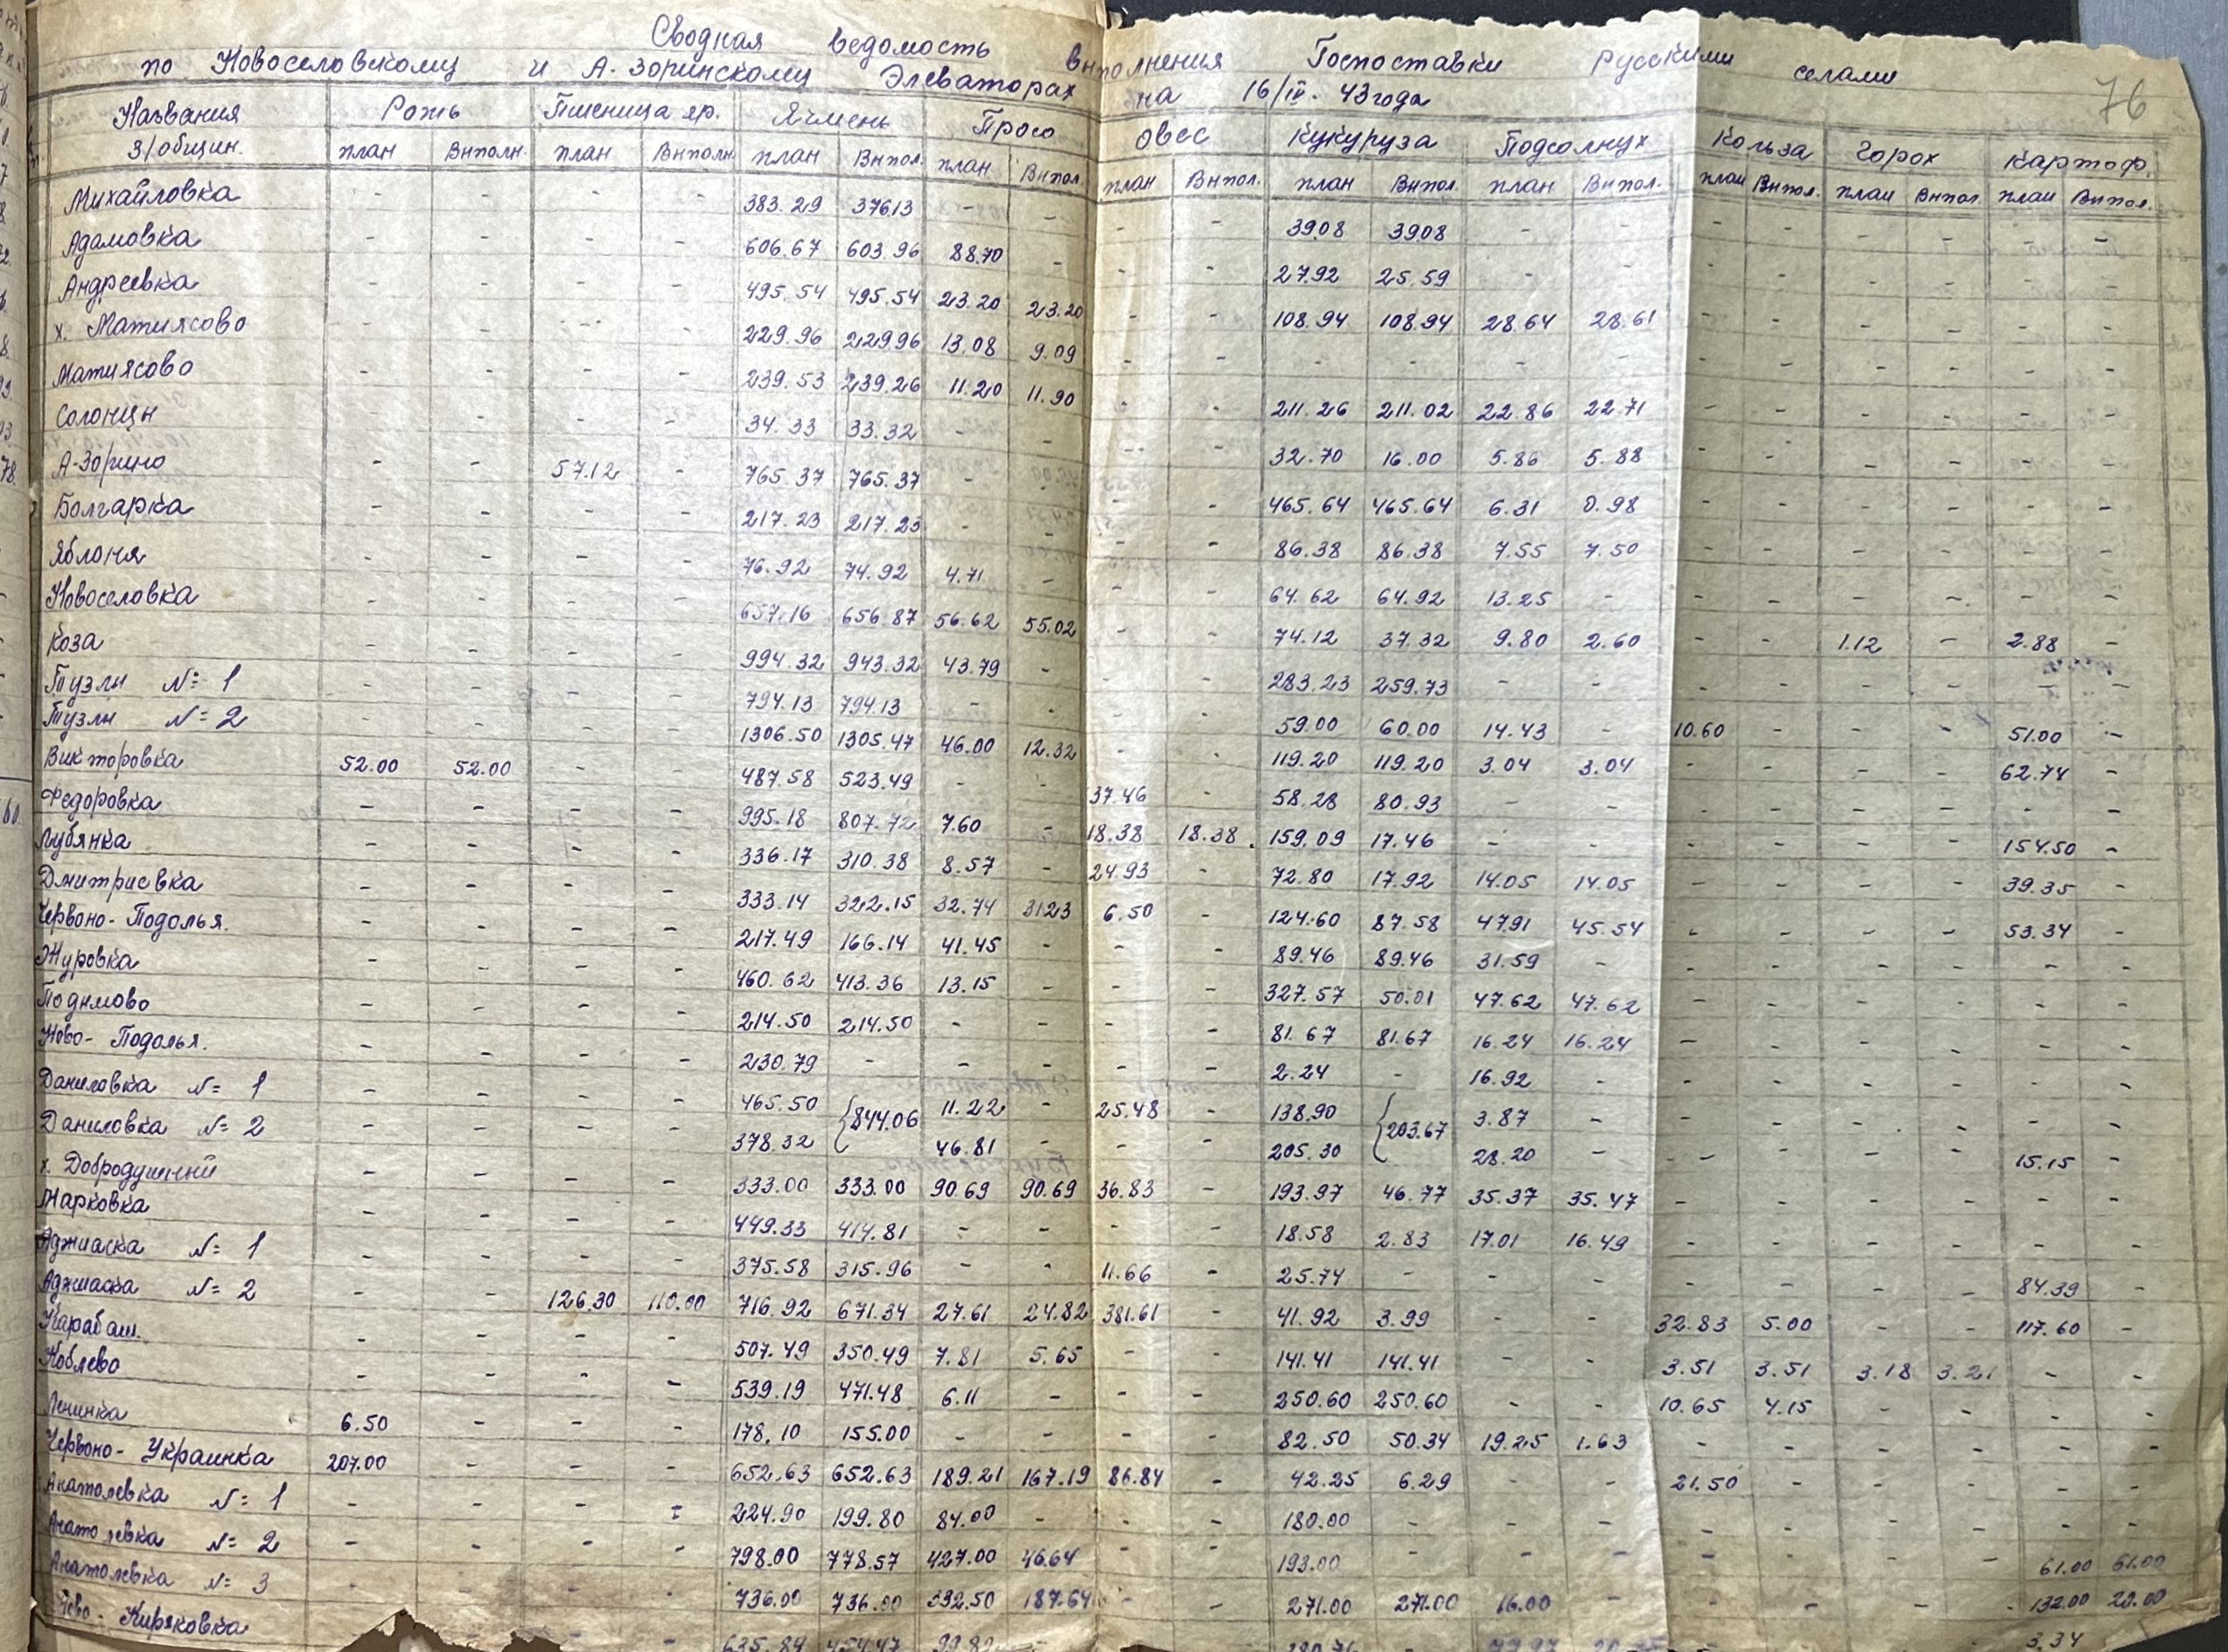 Сводная ведомость выполнения Госпоставки русскими селами
по Новоселовскому и А. Зоринскому Элеваторах на 16/IV. 43 года
76
Названия з/общин. Рожь Пшеница яр. Ячмень Просо Овес Кукуруза Подсолнух Кользa Горох Картоф.
план Выполн. план Выполн. план Выпол. план Выпол. план Выпол. план Выпол. план Выпол. план Выпол. план Выпол. план Выпол.
Михайловка - - - - 383.29 376.13 - - - - 39.08 39.08 - - - - - - - -
Адамовка - - - - 606.67 603.96 88.70 - - - 27.92 25.59 - - - - - - - -
Андреевка - - - - 495.54 495.54 23.20 23.20 - - 108.94 108.94 28.64 28.61 - - - - - -
х. Матиясово - - - - 229.96 229.96 13.08 9.09 - - - - - - - - - - - -
Матиясово - - - - 239.53 239.26 11.20 11.90 - - 211.26 211.02 22.86 22.71 - - - - - -
Солонцы - - - 34.33 33.32 - - - - 32.70 16.00 5.86 5.88 - - - - - -
А-Зорино - - 57.12 - 765.37 765.37 - - - - 465.64 465.64 6.31 0.98 - - - - - -
Болгарка - - - - 217.23 217.23 - - - - 86.38 86.38 7.55 7.50 - - - - - -
Яблоня - - - - 76.92 74.92 4.71 - - - 64.62 64.92 13.25 - - - - - - -
Новоселовка - - - - 657.16 656.87 56.62 55.02 - - 74.12 37.32 9.80 2.60 - - 1.12 - 2.88 -
Коза - - - - 994.32 943.32 43.79 - - - 283.23 259.73 - - - - - - - -
Тузлы № 1 - - - - 794.13 794.13 - - - - 59.00 60.00 14.43 - 10.60 - - - 51.00 -
Тузлы № 2 - - - - 1306.50 1305.47 46.00 12.32 - - 119.20 119.20 3.04 3.04 - - - - 62.74 -
Викторовка 52.00 52.00 - - 487.58 523.49 - - 37.46 - 58.28 80.93 - - - - - - - -
Федоровка - - - - 995.18 807.72 7.60 - 18.38 18.38 159.09 17.46 - - - - - - 154.50 -
Лубянка - - - - 336.17 310.38 8.57 - 24.93 - 72.80 17.92 14.05 14.05 - - - - 39.35 -
Дмитриевка - - - - 333.14 322.15 32.74 31.23 6.50 - 124.60 87.58 47.91 45.54 - - - - 53.34 -
Червоно-Подолья. - - - - 217.49 166.14 41.45 - - - 89.46 89.46 31.59 - - - - - - -
Журовка - - - - 460.62 413.36 13.15 - - - 327.57 50.01 47.62 47.62 - - - - - -
Подымово - - - - 214.50 214.50 - - - - 81.67 81.67 16.24 16.24 - - - - - -
Ново-Подолья. - - - - 230.79 - - - - - 2.24 - 16.92 - - - - - - -
Даниловка № 1 - - - - 465.50 {844.06 11.22 - 25.48 - 138.90 {203.67 3.87 - - - - - - -
Даниловка № 2 - - - - 378.32 46.81 - - - 205.30 28.20 - - - - - 15.15 -
х. Добродушный - - - - 333.00 333.00 90.69 90.69 36.83 - 193.97 46.77 35.37 35.47 - - - - - -
Марковка - - - - 449.33 414.81 - - - - 18.58 2.83 17.01 16.49 - - - - - -
Аджиаска № 1 - - - - 375.58 315.96 - - 11.66 - 25.74 - - - - - - - 84.39 -
Аджиаска № 2 - - 126.30 110.00 716.92 671.34 27.61 24.82 381.61 - 41.92 3.99 - - 32.83 5.00 - - 117.60 -
Карабаш. - - - - 507.49 350.49 7.81 5.65 - - 141.41 141.41 - - 3.51 3.51 3.18 3.21 - -
Коблево - - - - 539.19 471.48 6.11 - - - 250.60 250.60 - - 10.65 4.15 - - - -
Ленинка 6.50 - - - 178.10 155.00 - - - - 82.50 50.34 19.25 1.63 - - - - - -
Червоно-Украинка 207.00 - - - 652.63 652.63 189.21 167.19 86.84 - 42.25 6.29 - - 21.50 - - - - -
Анатолевка № 1 - - - - 224.90 199.80 84.00 - - - 180.00 - - - - - - - - -
Анатолевка № 2 - - - - 798.00 778.57 427.00 46.64 - - 193.00 - - - - - - - 61.00 61.00
Анатолевка № 3 - - - - 736.00 736.00 392.50 187.64 - - 271.00 271.00 16.00 - - - - - 132.00 20.00
Киряковка 635.84 454.47 99.82 3.34